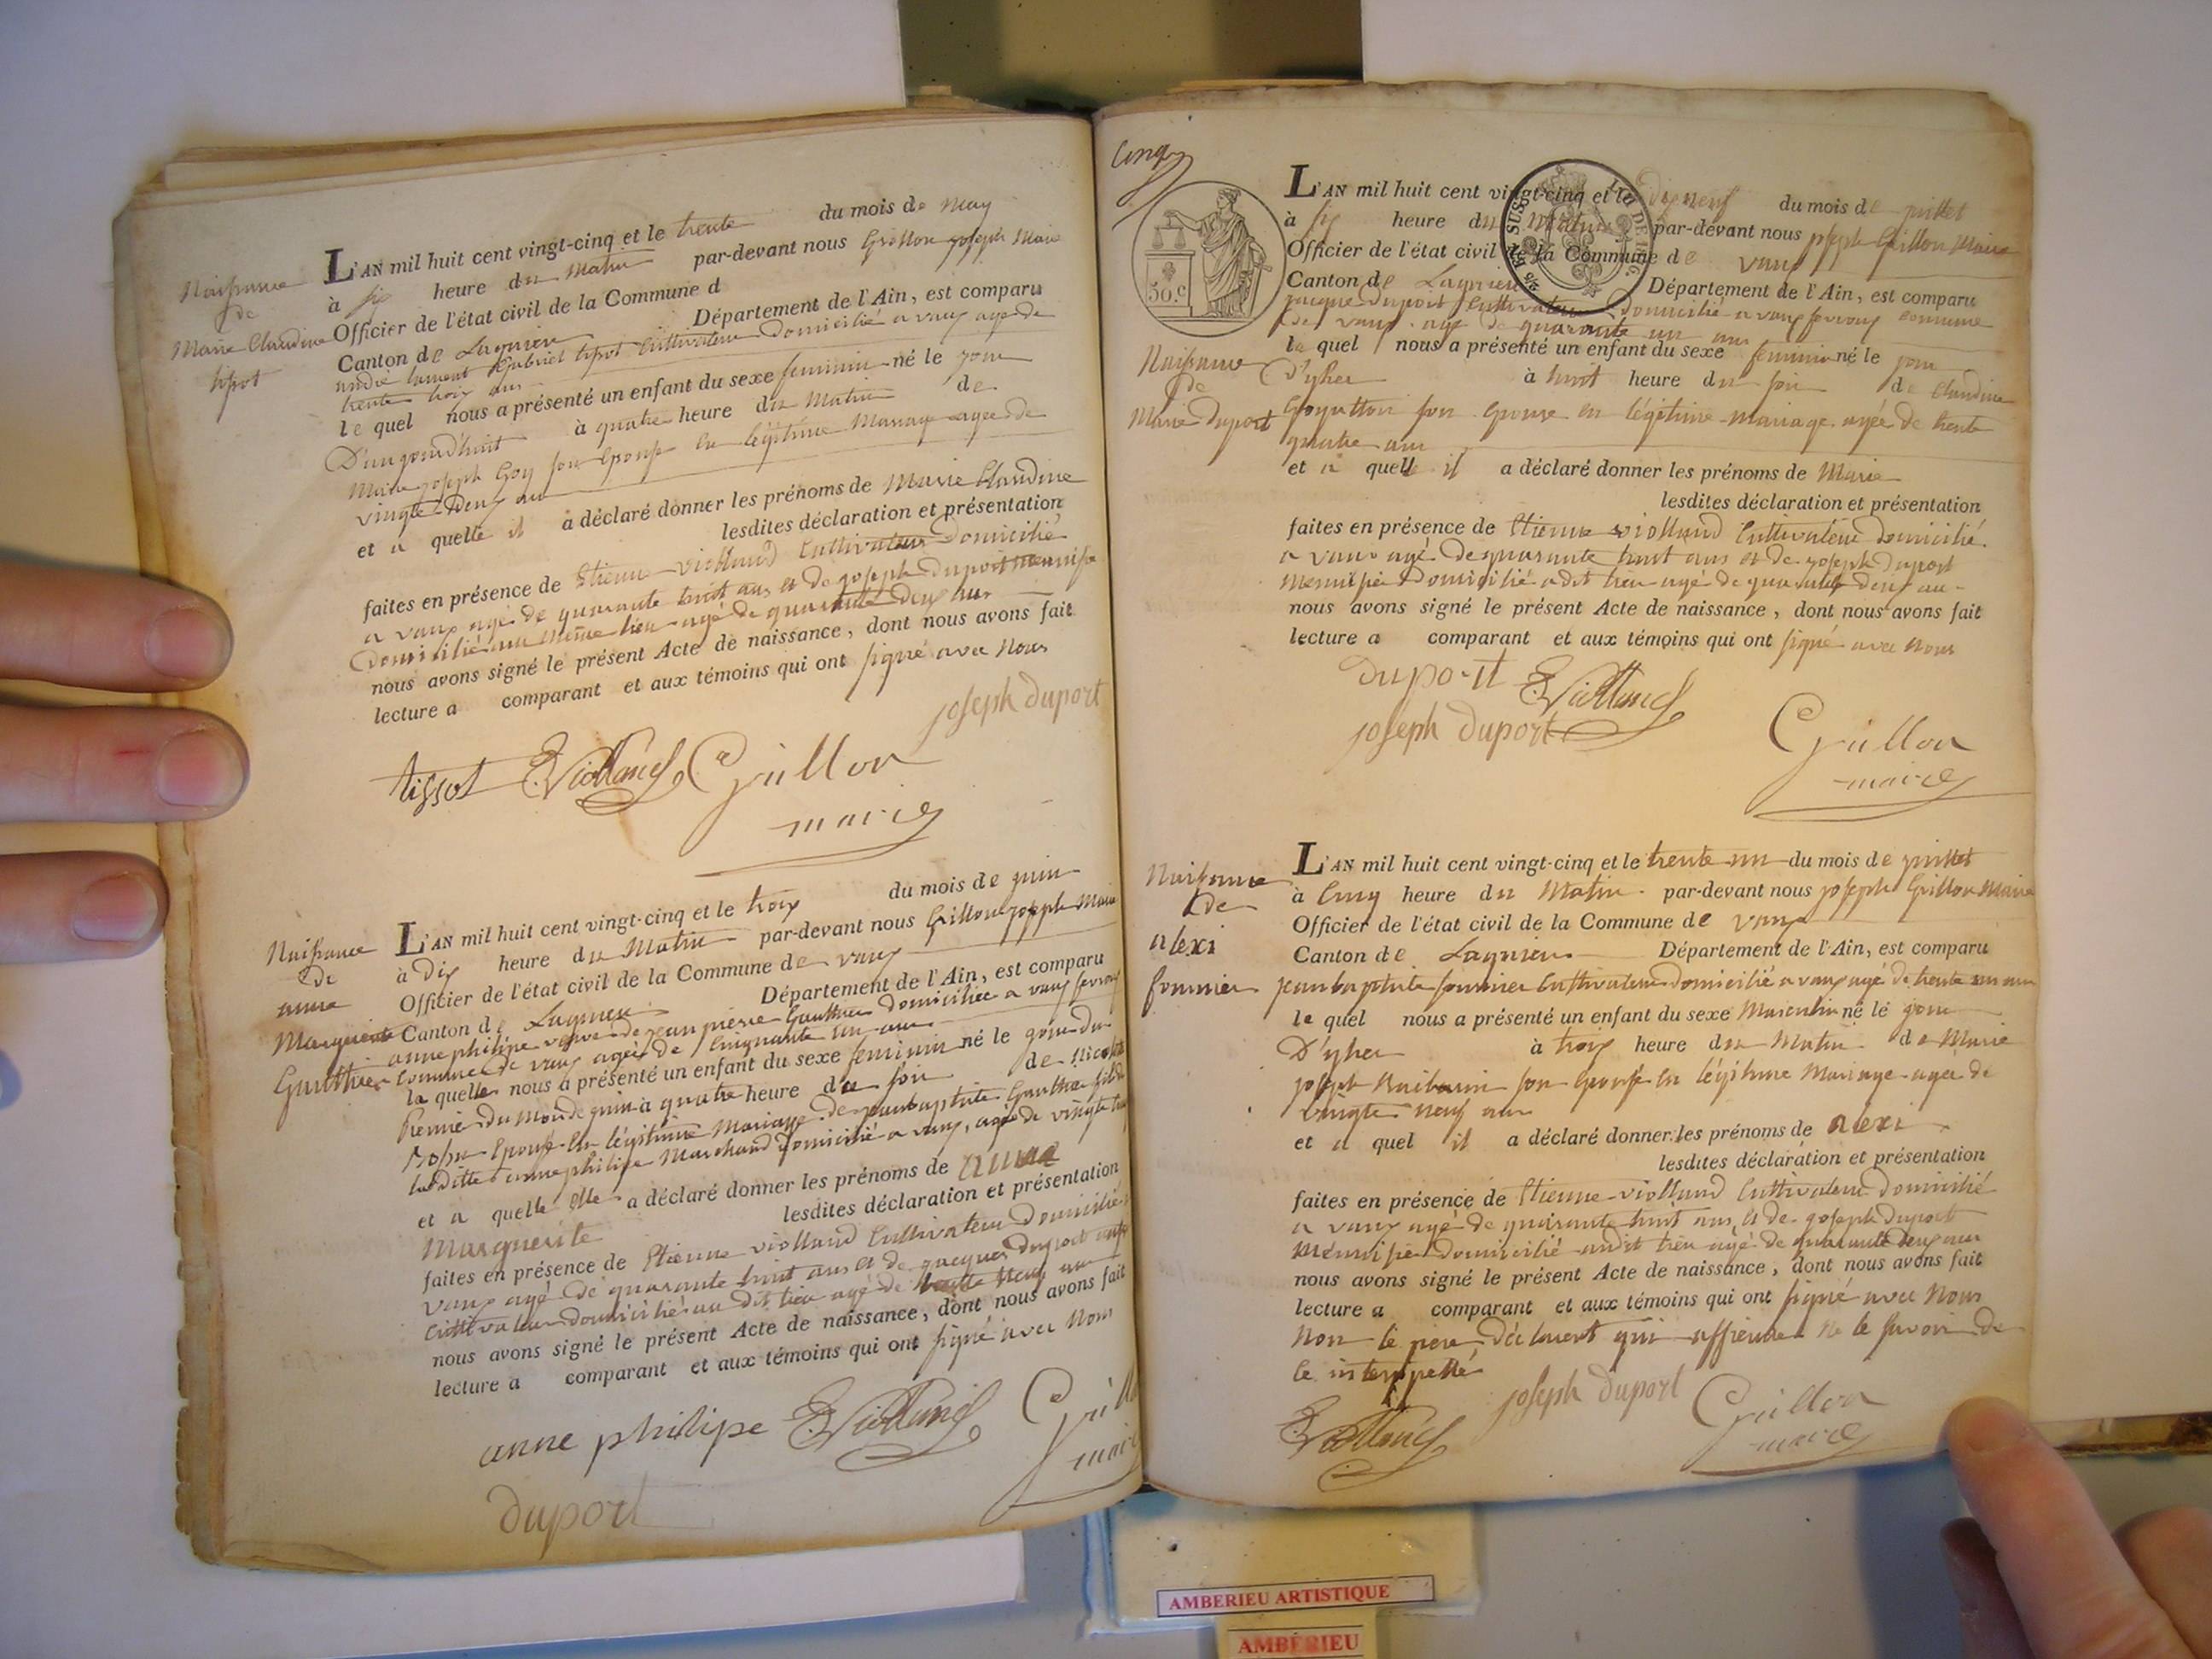 Naissance
de
Marie Claudine
tissot
L'AN mil huit cent vingt-cinq et le trente du mois de may
à six heure du Matin par-devant nous Grillon joseph Maire
Officier de l'état civil de la Commune d
Canton de Lagnieu Département de l'Ain, est comparu
andré laurent Gabriel tissot Cultivateur Domicilié a vaux agé de
trente troix ans
le quel nous a présenté un enfant du sexe feminin né le jour
D'aujourd'huit à quatre heure du Matin de
Marie joseph Goy son Epouse en légitime Mariage agée de
vingte Deux an
et a quelle il a déclaré donner les prénoms de Marie Claudine
lesdites déclaration et présentation
faites en présence de Etienne violland Cultivateur Domicilié
a vaux agé de quarante huit ans et de joseph duport menuisie
Domicilié au même lieu agé de quarante Deux ans
nous avons signé le présent Acte de naissance, dont nous avons fait
lecture a comparant et aux témoins qui ont signé avec Nous
joseph duport
tissot E. Violland Grillon
maire
Naissance
de
anne
Marguerite
Gauthier
L'AN mil huit cent vingt-cinq et le troix du mois de juin
à Dix heure du Matin par-devant nous Grillon joseph Maire
Officier de l'état civil de la Commune de vaux
Canton de Lagnieu Département de l'Ain, est comparu
anne philipe veuve de jean pierre Gauthier domiciliée a vaux
Commune de vaux agée de Cinquante un an
la quelle nous a présenté un enfant du sexe feminin né le jour du
Premié du Mois de juin à quatre heure du soir de
Epouse en légitime Mariage de jean baptiste Gauthier fils de
la ditte anne philipe Marchand Domicilié a vaux, agée de vingte
et a quelle Elle a déclaré donner les prénoms de anne
Marguerite lesdites déclaration et présentation
faites en présence de Etienne violland Cultivateur Domicilié
vaux agé de quarante huit ans et de jacques duport
Cultivateur domicilié au dit lieu agé de an
nous avons signé le présent Acte de naissance, dont nous avons fait
lecture a comparant et aux témoins qui ont signé avec Nous
anne philipe E. Violland Grillon
maire
duport
Cinq
50.c
Naissance
de
Marie Duport
L'AN mil huit cent vingt-cinq et le dix neuf du mois de juillet
à six heure du Matin par-devant nous joseph Grillon Maire
Officier de l'état civil de la Commune de vaux
Canton de Lagnieu Département de l'Ain, est comparu
jacque duport Cultivateur Domicilié a vaux commune
de vaux agé de quarante un an
le quel nous a présenté un enfant du sexe feminin né le jour
D'yher à huit heure du soir de Claudine
son Epouse en légitime mariage agée de trente
quatre an
et a quelle il a déclaré donner les prénoms de Marie
lesdites déclaration et présentation
faites en présence de Etienne violland Cultivateur Domicilié
a vaux agé de quarante huit ans et de joseph Duport
Menuisier Domicilié a dit lieu agé de quarante deux an
nous avons signé le présent Acte de naissance, dont nous avons fait
lecture a comparant et aux témoins qui ont signé avec Nous
duport E. Violland
joseph duport Grillon
maire
Naissance
de
alexi
fournier
L'AN mil huit cent vingt-cinq et le trente un du mois de juillet
à Cinq heure du Matin par-devant nous joseph Grillon Maire
Officier de l'état civil de la Commune de vaux
Canton de Lagnieu Département de l'Ain, est comparu
jean baptiste fournier Cultivateur domicilié a vaux agé de trente un an
le quel nous a présenté un enfant du sexe Masculin né le jour
D'yher à troix heure du Matin de Marie
joseph son Epouse en légitime Mariage agée de
vingte neuf an
et a quel il a déclaré donner les prénoms de alexi
lesdites déclaration et présentation
faites en présence de Etienne violland Cultivateur domicilié
a vaux agé de quarante huit ans et de joseph duport
Menuisier domicilié audit lieu agé de quarante deux ans
nous avons signé le présent Acte de naissance, dont nous avons fait
lecture a comparant et aux témoins qui ont signé avec Nous
Non le pere Déclarent ne le savoir de
ce interppellé
E. Violland joseph duport Grillon
maire
AMBERIEU ARTISTIQUE
AMBÉRIEU